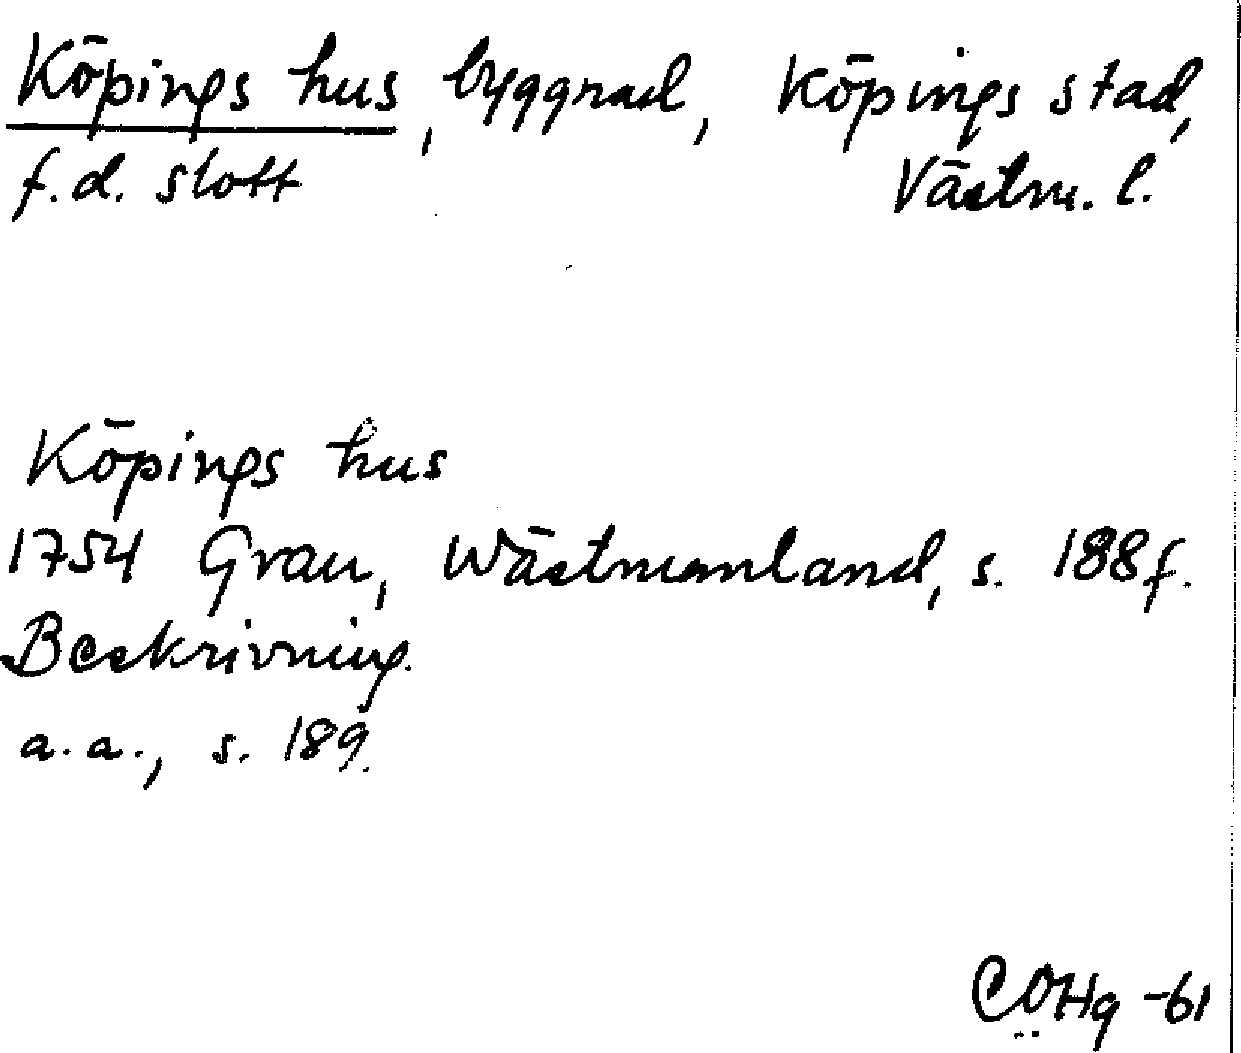 Köpings hus, byggnad, Köpings stad,
f.d. slott Västm. l.
Köpings hus
1754 Grau, Wästmanland, s. 188 f.
Beskrivning.
a.a., s. 189.
COHg -61